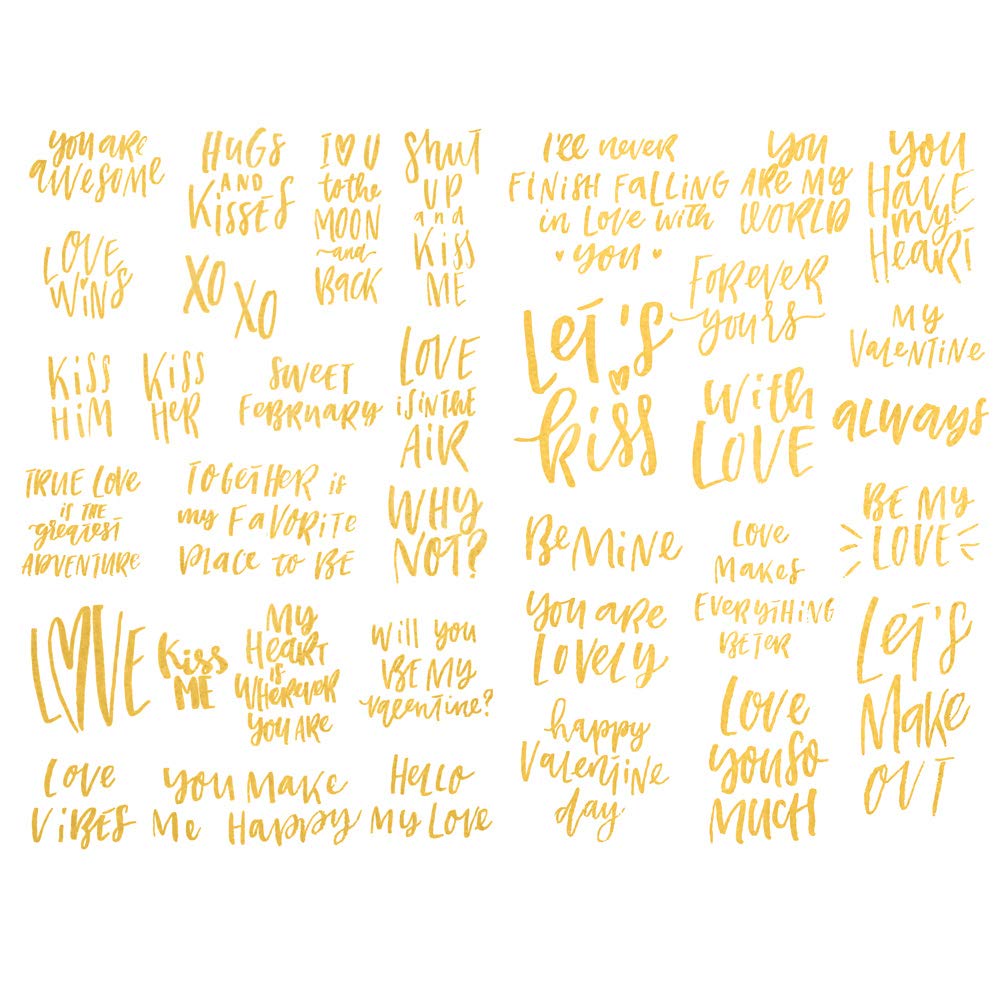 you are
awesome
HUGS
AND
Kisses
I ♥ U
to the
MOON
and
BACK
Shut
UP
and
KISS
ME
LOVE
WINS
XO
XO
KISS
HIM
KISS
HER
SWEET
FEBRUARY
LOVE
IS IN THE
AIR
TRUE LOVE
is THE
greatest
ADVENTURE
TOGETHER is
my FAVORITE
PLACE TO BE
WHY
NOT?
LOVE
Kiss
ME
MY
HEART
is
WHEREVER
YOU ARE
Will you
BE MY
valentine?
Love
VIBES
YOU MAKE
Me HAPPY
Hello
My Love
I'll never
FINISH FALLING
in Love with
you
You
ARE MY
WORLD
You
HAVE
my
HEART
Forever
yours
Let's
kiss
MY
Valentine
With
LOVE
always
Be Mine
Love
Makes
EVERYTHING
BETER
BE MY
LOVE
You are
Lovely
Let's
Make
OUT
happy
Valentine
day
Love
you so
MUCH